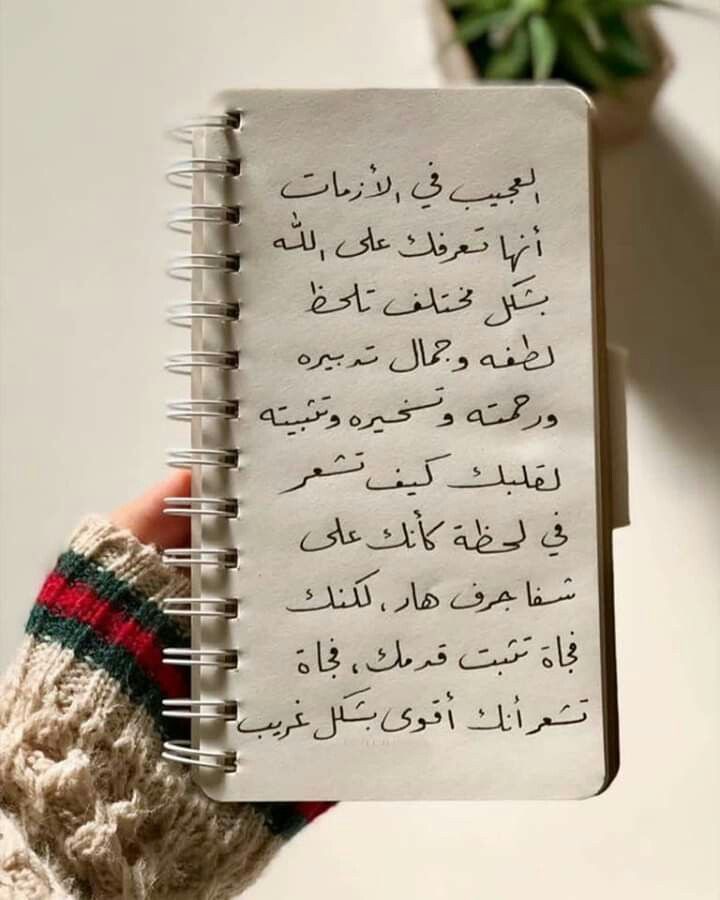 العجيب في الأزمات
أنها تعرفك على الله
بشكل مختلف تلحظ
لطفه وجمال تدبيره
ورحمته وتسخيره وتثبيته
لقلبك كيف تشعر
في لحظة كأنك على
شفا جرف هار، لكنك
فجاة تثبت قدمك، فجاة
تشعر أنك أقوى بشكل غريب